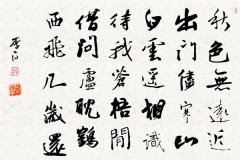 秋色無遠近
出門儘寒山
白雲遥相識
待我蒼梧間
借問盧耽鶴
西飛几歲還